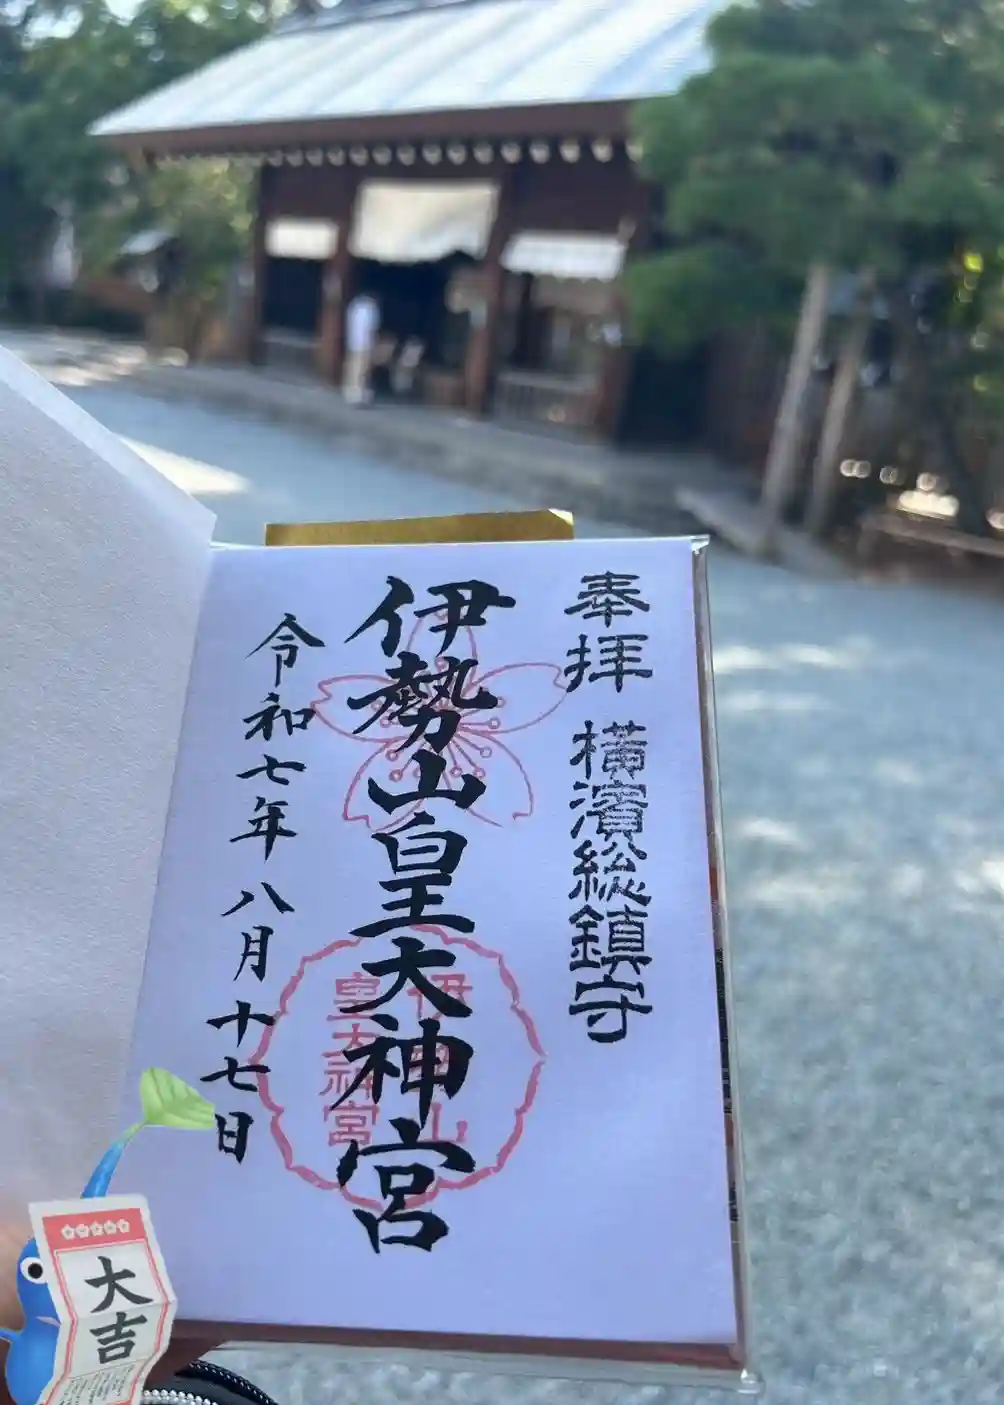 奉拝 横濱総鎮守
伊勢山皇大神宮
令和七年八月十七日
皇大神宮
大吉